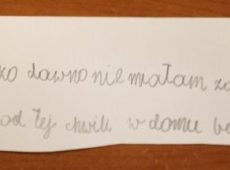 zo dawno nie miałam za
od tej chwili w domu be